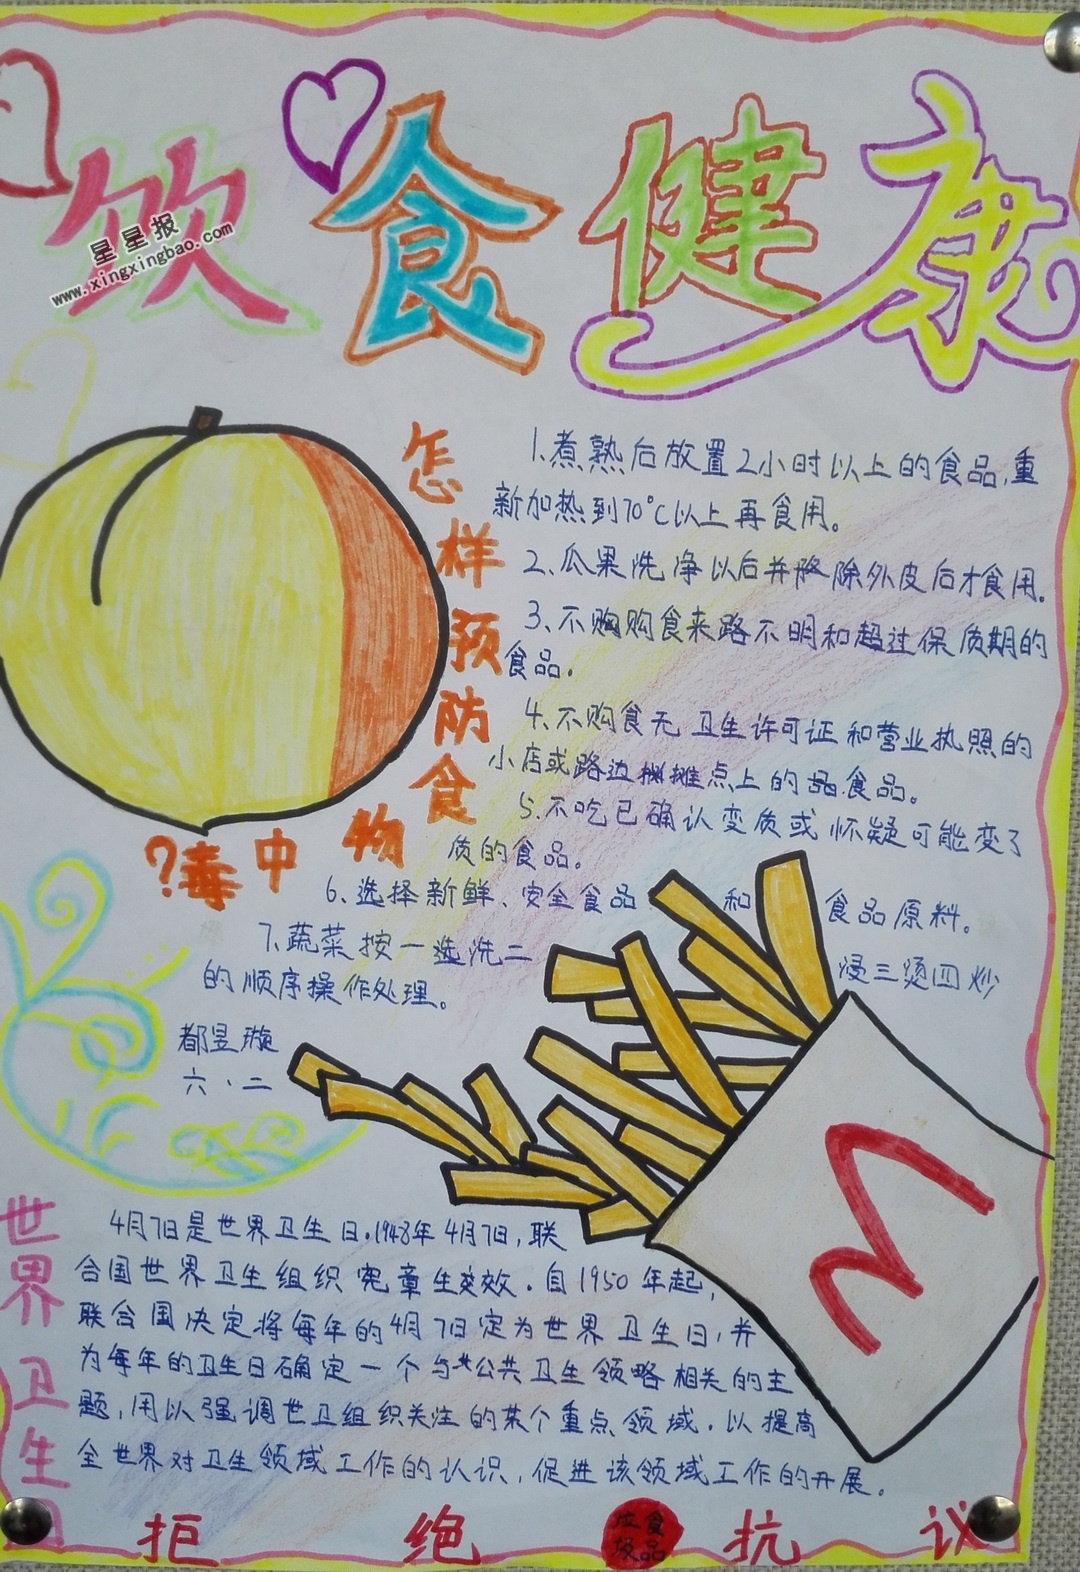 饮食健康
星星报
www.xingxingbao.com
怎样预防食物中毒?
1.煮熟后放置2小时以上的食品,重
新加热到70°C以上再食用。
2、瓜果洗净以后并除外皮后才食用。
3、不购购食来路不明和超过保质期的
食品.
4、不购食无卫生许可证和营业执照的
小店或路边摊点上的食品。
5.不吃已确认变质或怀疑可能变了
质的食品。
6、选择新鲜、安全食品和食品原料。
7、蔬菜按一选洗二浸三烫四炒
的顺序操作处理。
都昱璇
六·二
世界卫生日
4月7日是世界卫生日.1948年4月7日,联
合国世界卫生组织宪章生效.自1950年起,
联合国决定将每年的4月7日定为世界卫生日,并
为每年的卫生日确定一个与公共卫生领略相关的主
题,用以强调世卫组织关注的某个重点领域.以提高
全世界对卫生领域工作的认识,促进该领域工作的开展。
拒绝垃圾食品抗议